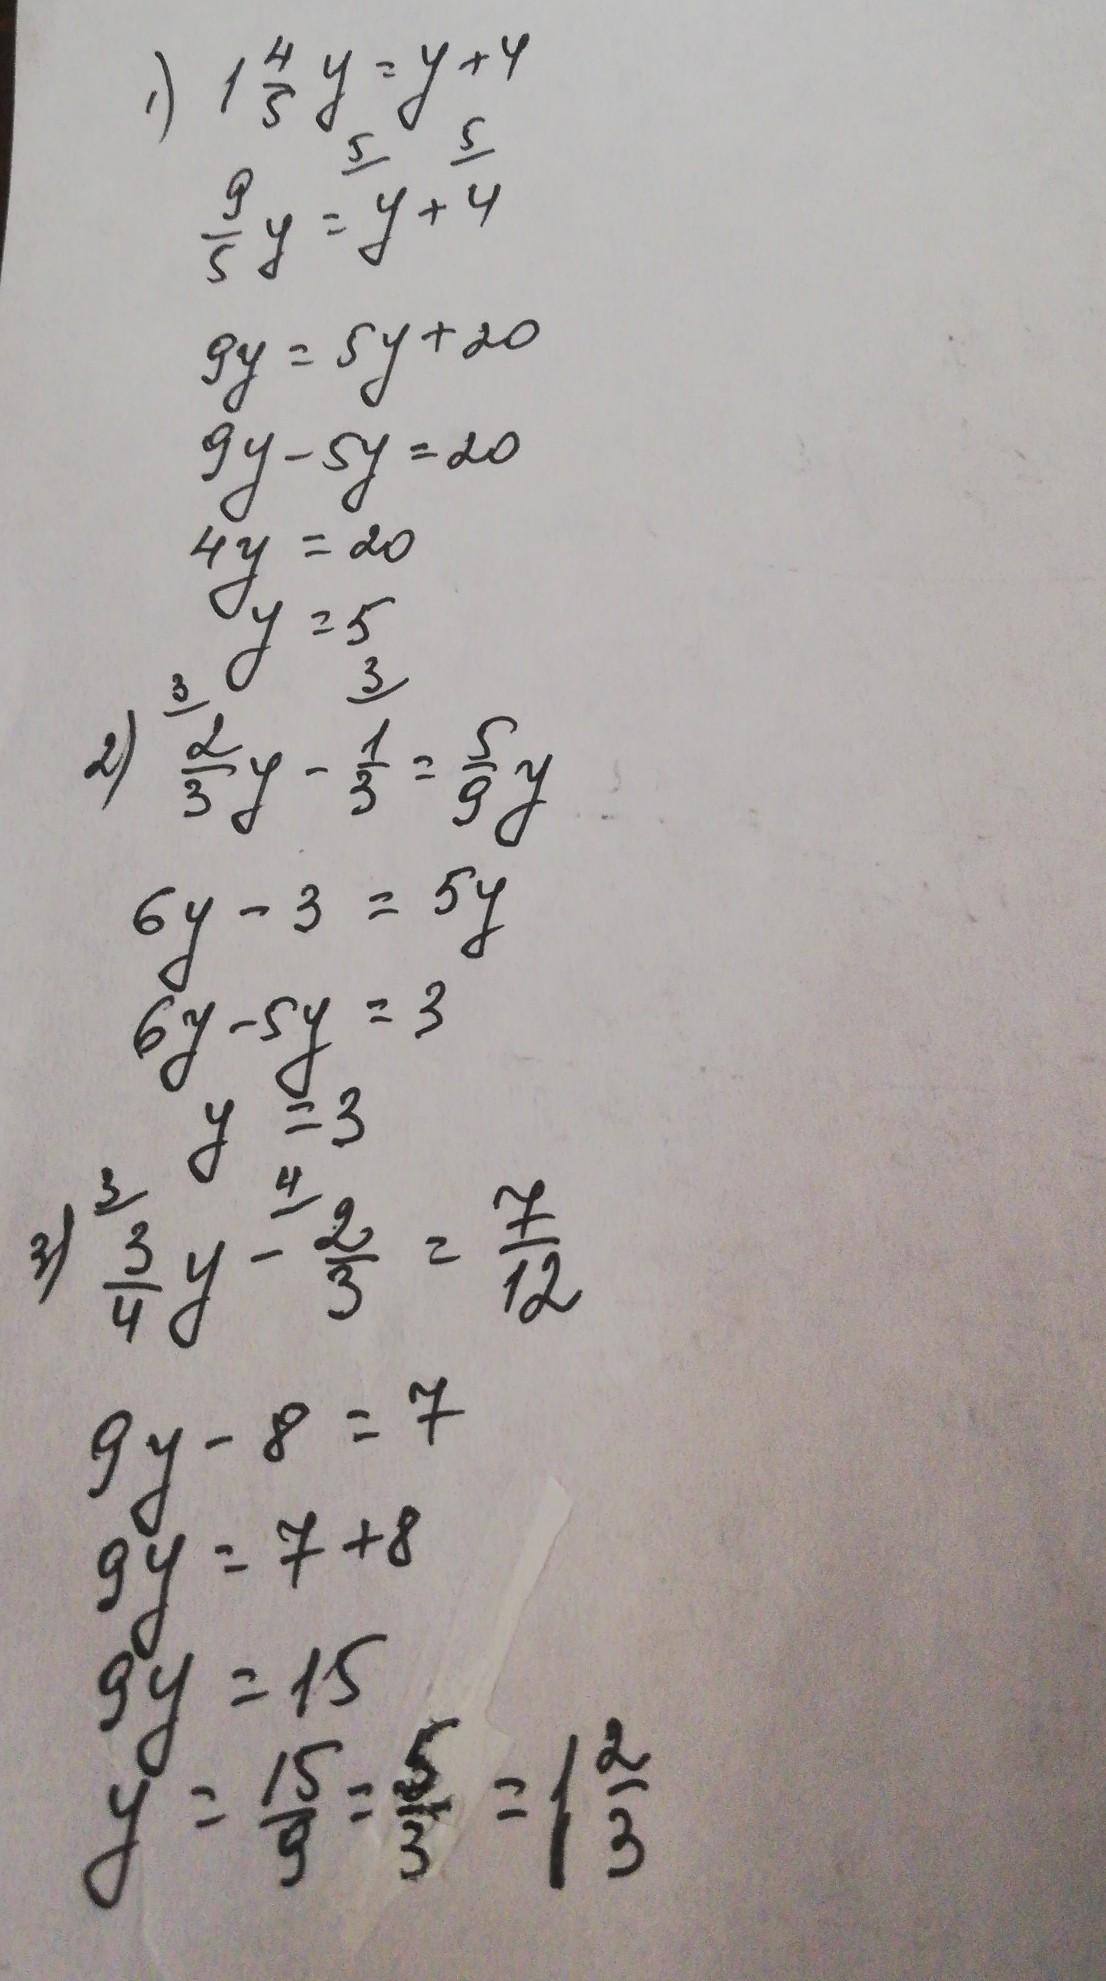 1) 1 4/5 y = y + 4
5 5
9/5 y = y + 4
9y = 5y + 20
9y - 5y = 20
4y = 20
y = 5
3 3
2) 2/3 y - 1/3 = 5/9 y
6y - 3 = 5y
6y - 5y = 3
y = 3
3 4
3) 3/4 y - 2/3 = 7/12
9y - 8 = 7
9y = 7 + 8
9y = 15
y = 15/9 = 5/3 = 1 2/3